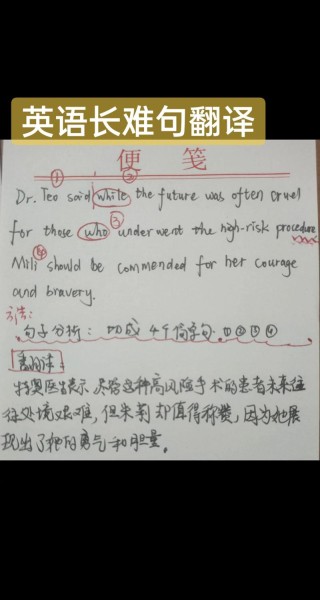 英语长难句翻译
便 笺
① ②
Dr. Teo said while the future was often cruel
③
for those who underwent the high-risk procedure
④
Mili should be commended for her courage
and bravery.
方法:
句子分析: 切成4个简单句 ①②③④
翻译:
特奥医生表示 尽管这种高风险手术的患者未来往
往处境艰难, 但米莉却值得称赞, 因为她展
现出了她的勇气和胆量。